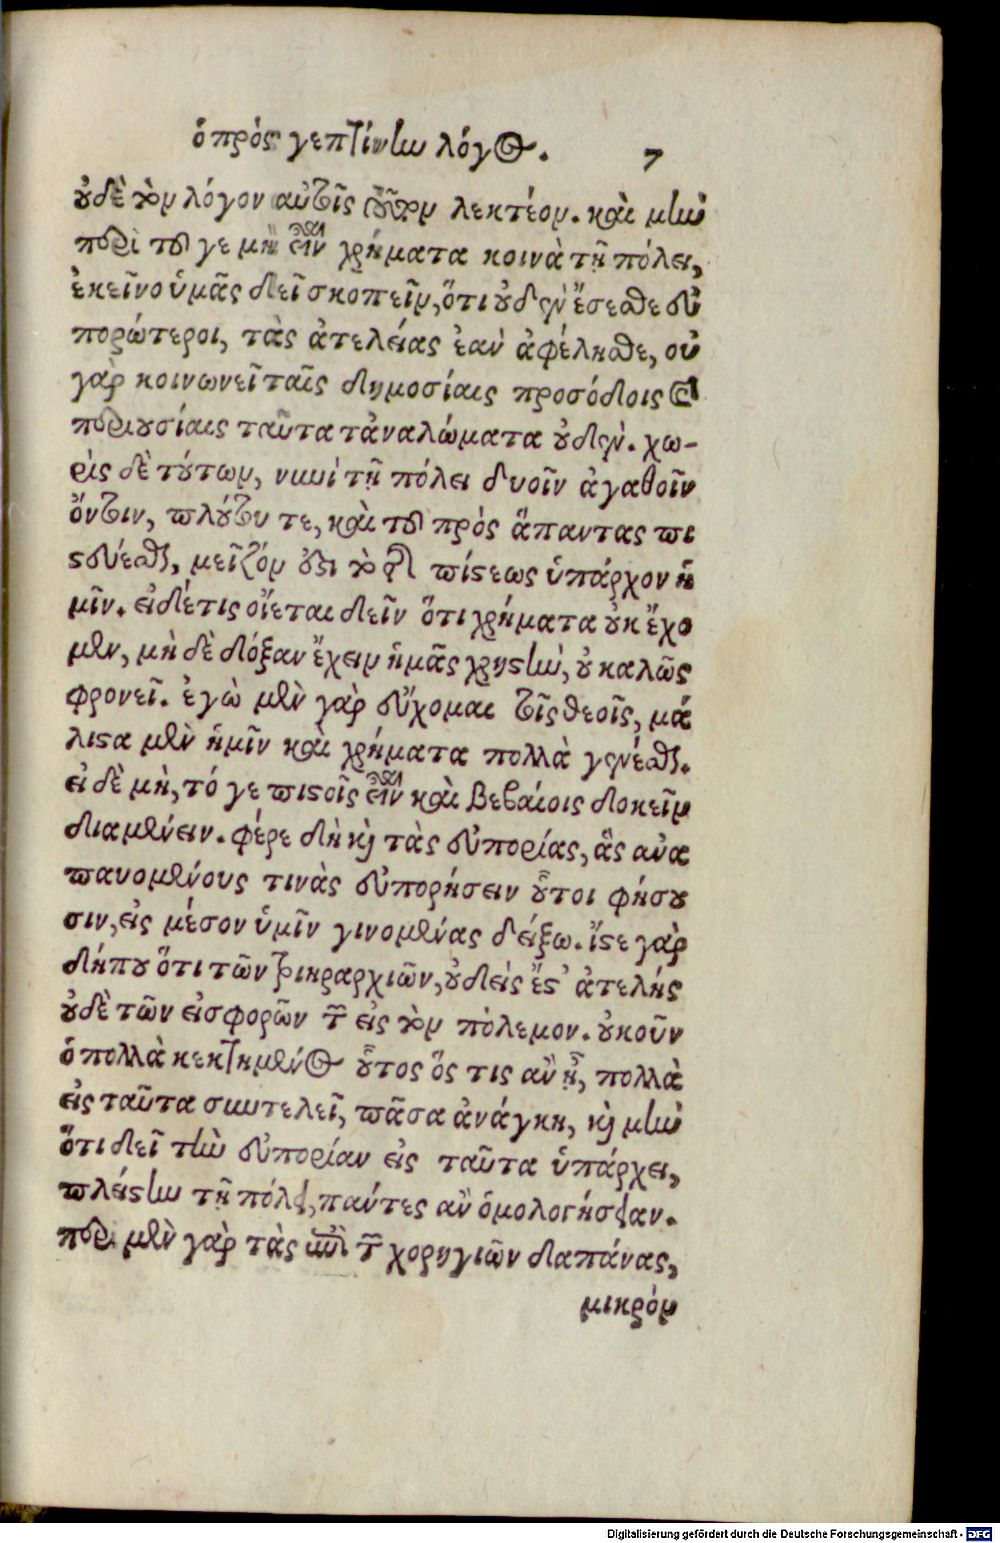 ὁ πρὸς γεπτίνην λόγος. 7
οὐδὲ τὸν λόγον αὐτοῖς τοῦτον λεκτέον. καὶ μὴν
περὶ τοῦ γε μὴ εἶναι χρήματα κοινὰ τῇ πόλει,
ἐκεῖνο ὑμᾶς δεῖ σκοπεῖν, ὅτι οὐδὲν ἔσεσθε εὐ
πορώτεροι, τὰς ἀτελείας ἐὰν ἀφέλησθε, οὐ
γὰρ κοινωνεῖ ταῖς δημοσίαις προσόδοις καὶ
περιουσίαις ταῦτα τἀναλώματα οὐδέν. χω-
ρὶς δὲ τούτων, νυνὶ τῇ πόλει δυοῖν ἀγαθοῖν
ὄντοιν, πλούτου τε, καὶ τοῦ πρὸς ἅπαντας πι
στεύεσθαι, μεῖζόν ἐστι τὸ τῆς πίστεως ὑπάρχον ἡ
μῖν. εἰ δέ τις οἴεται δεῖν ὅτι χρήματα οὐκ ἔχο
μεν, μὴ δὲ δόξαν ἔχειν ἡμᾶς χρηστὴν, οὐ καλῶς
φρονεῖ. ἐγὼ μὲν γὰρ εὔχομαι τοῖς θεοῖς, μά
λιστα μὲν ἡμῖν καὶ χρήματα πολλὰ γενέσθαι.
εἰ δὲ μὴ, τό γε πιστοῖς εἶναι καὶ βεβαίοις δοκεῖν
διαμένειν. φέρε δὴ καὶ τὰς εὐπορίας, ἃς ἀνα
παυομένους τινὰς εὐπορήσειν οὗτοι φήσου
σιν, εἰς μέσον ὑμῖν γινομένας δείξω. ἴστε γὰρ
δήπου ὅτι τῶν τριηραρχιῶν, οὐδείς ἔστ' ἀτελής
οὐδὲ τῶν εἰσφορῶν τῶν εἰς τὸν πόλεμον. οὐκοῦν
ὁ πολλὰ κεκτημένος οὗτος ὅς τις ἂν ᾖ, πολλὰ
εἰς ταῦτα συντελεῖ, πᾶσα ἀνάγκη, καὶ μὴν
ὅτι δεῖ τὴν εὐπορίαν εἰς ταῦτα ὑπάρχει,
πλείστην τῇ πόλει, πάντες ἂν ὁμολογήσειαν.
περὶ μὲν γὰρ τὰς ἐπὶ τῶν χορηγιῶν δαπάνας,
μικρὸν
Digitalisierung gefördert durch die Deutsche Forschungsgemeinschaft - DFG